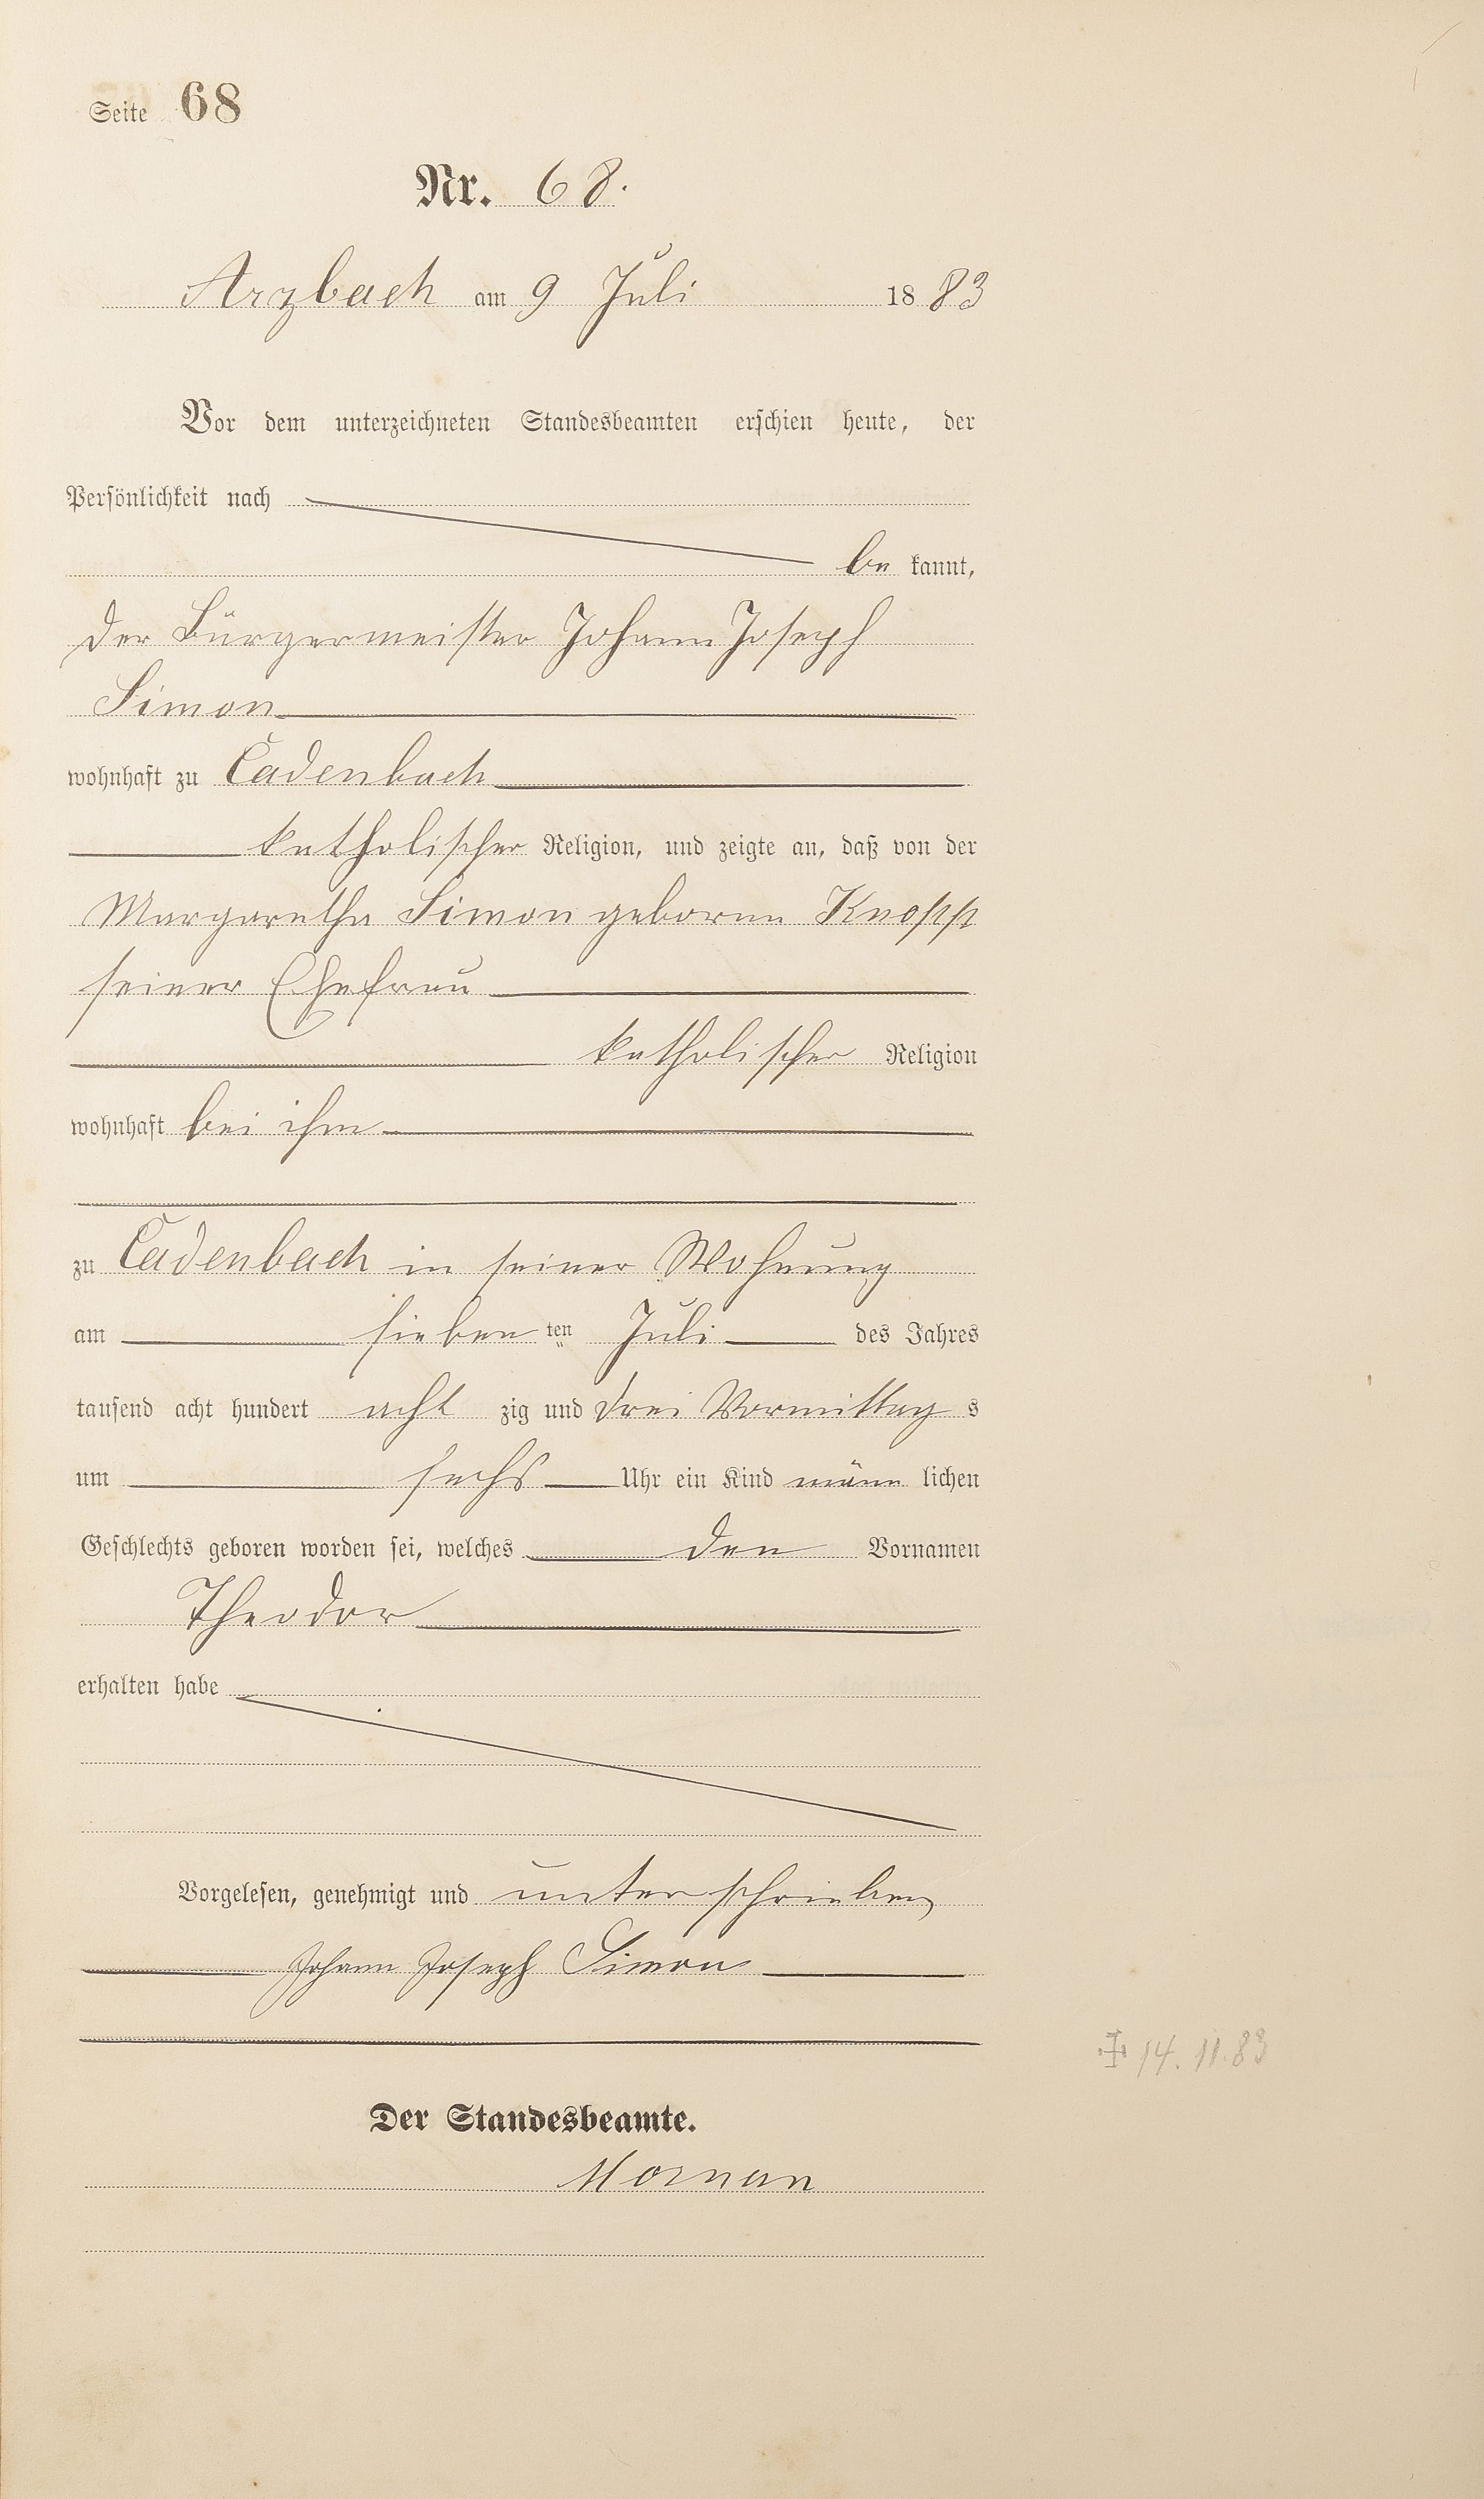 Seite 68
Nr. 68.
Arzbach am 9 Juli 1883
Vor dem unterzeichneten Standesbeamten erschien heute, der
Persönlichkeit nach
be kannt,
der Bürgermeister Johann Joseph
Simon
wohnhaft zu Cadenbach
katholischer Religion, und zeigte an, daß von der
Margaretha Simon geborne Knopp
seiner Ehefrau
katholischer Religion
wohnhaft bei ihm
zu Cadenbach in seiner Wohnung
am sieben ten Juli des Jahres
tausend acht hundert acht zig und drei Vormittag s
um sechs Uhr ein Kind männ lichen
Geschlechts geboren worden sei, welches den Vornamen
Theodor
erhalten habe
Vorgelesen, genehmigt und unterschrieben
Johann Joseph Simon
14. 11. 83
Der Standesbeamte.